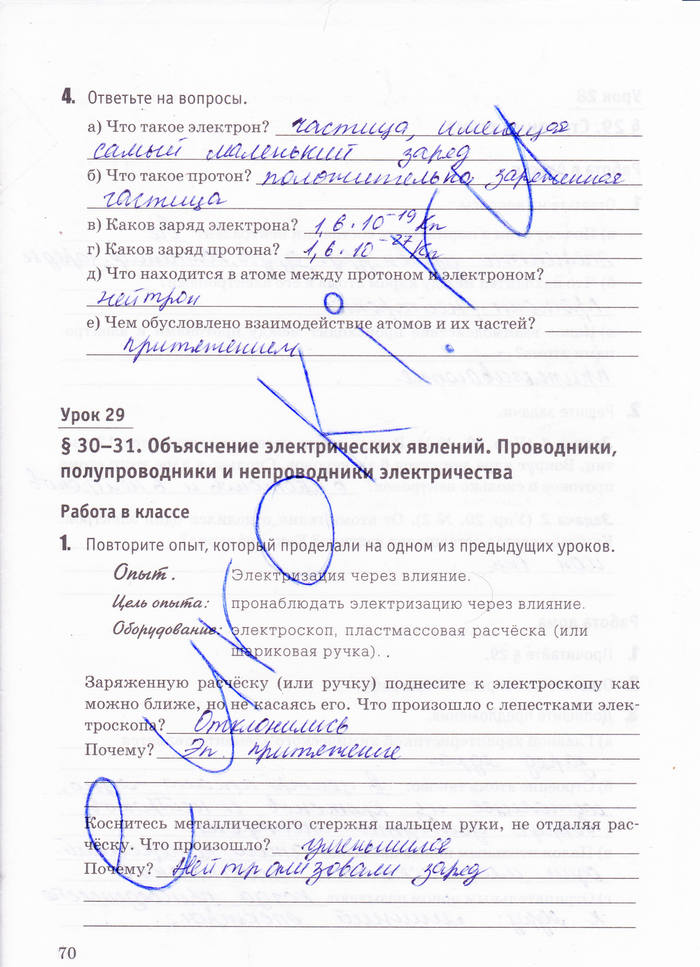 4. Ответьте на вопросы.
а) Что такое электрон? частица, имеющая
самый маленький заряд
б) Что такое протон? положительно заряженная
частица
в) Каков заряд электрона? 1,6 · 10⁻¹⁹ Кл
г) Каков заряд протона? 1,6 · 10⁻²⁷ Кл
д) Что находится в атоме между протоном и электроном?
нейтрон
е) Чем обусловлено взаимодействие атомов и их частей?
притяжением
Урок 29
§ 30–31. Объяснение электрических явлений. Проводники,
полупроводники и непроводники электричества
Работа в классе
1. Повторите опыт, который проделали на одном из предыдущих уроков.
Опыт. Электризация через влияние.
Цель опыта: пронаблюдать электризацию через влияние.
Оборудование: электроскоп, пластмассовая расчёска (или
шариковая ручка). .
Заряженную расчёску (или ручку) поднесите к электроскопу как
можно ближе, но не касаясь его. Что произошло с лепестками элек-
троскопа? Отклонились
Почему? Эл. притяжение
Коснитесь металлического стержня пальцем руки, не отдаляя рас-
чёску. Что произошло? уменьшился
Почему? Нейтрализовали заряд
70